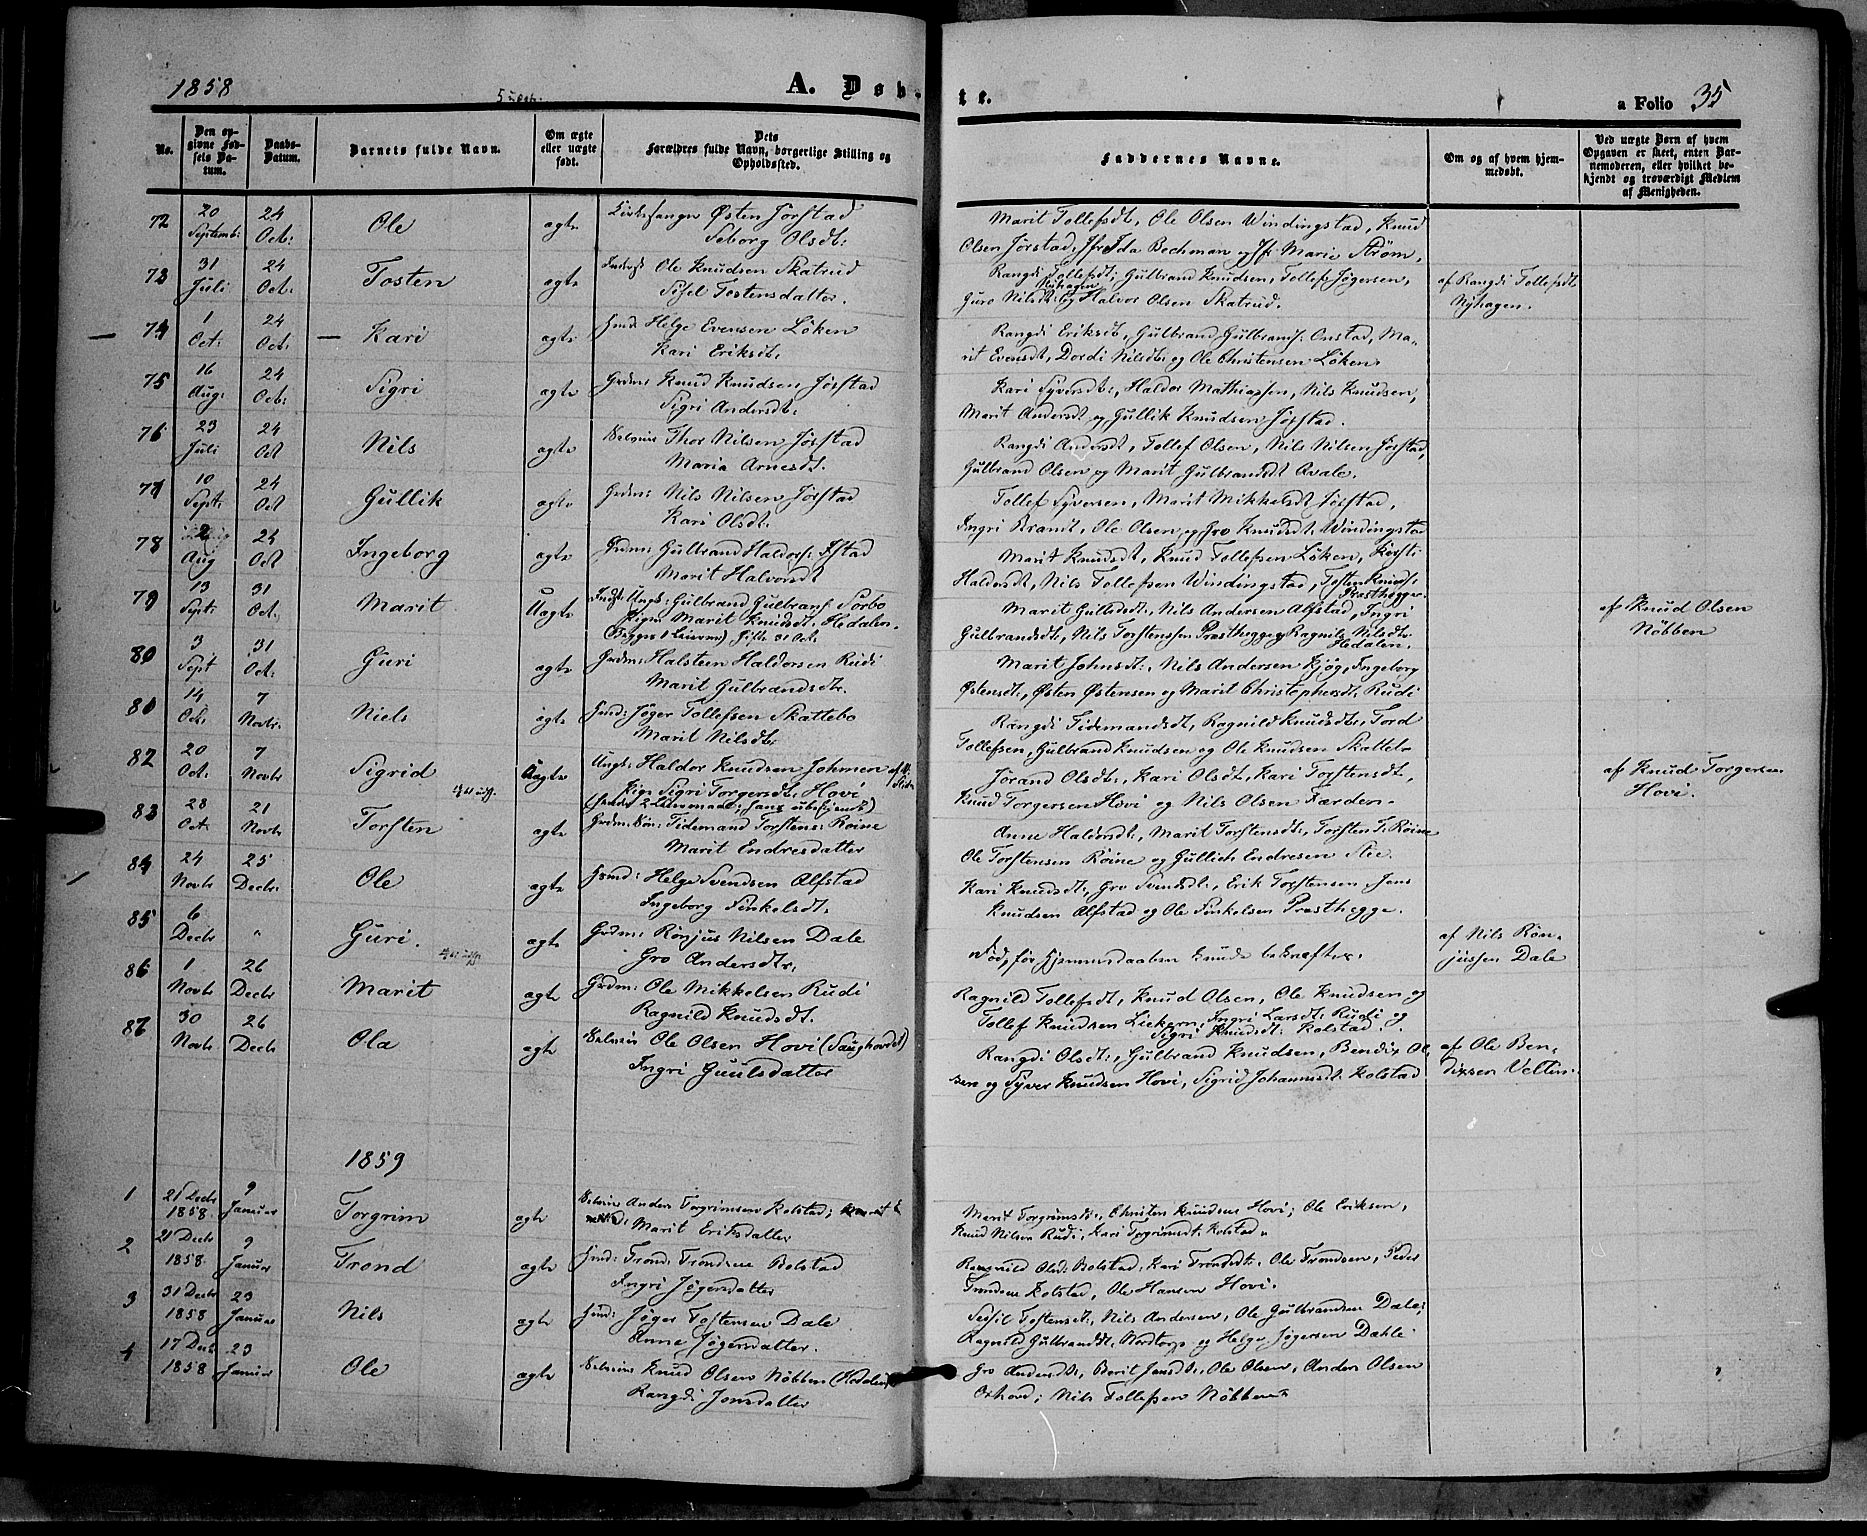 1858
A. Døb-
te.
a Folio 35
No.
Den opgivne Fødsels Datum.
Daabs-Datum.
Barnets fulde Navn.
Om ægte eller uægte født.
Dets Forældres fulde Navn, borgerlige Stilling og Opholdssted.
Faddernes Navne.
Om og af hvem hjemmedøbt.
Ved uægte Børn af hvem Opgaven er skeet, enten Barnemoderen, eller hvilket bekjendt og troværdigt Medlem af Menigheden.
72 20 Septemb: 24 Oct: Ole ægte Kirkesanger Østen Jørstad
Seborg Olsdt:
Marit Tollefsdt, Ole Olsen Windingstad, Knud
Olsen Jørstad, Jfr Ida Bechman og Jfr Marie Strøm,
73 31 Juli 24 Oct: Tosten ægte Ole Knudsen Skatrud
Sisel Tostensdatter.
Rangdi Tollefsdt; Gulbrand Knudsen, Tollef Jøgersen,
Nyhagen
Guro Nilsdt og Halvor Olsen Skatrud.
af Rangdi Tollefsdt
Nyhagen.
74 1 Oct: 24 Oct: Kari ægte Hmd: Helge Evensen Løken
Kari Eriksdt:
Rangdi Eriksdt, Gulbrand Gulbrands: Onstad, Ma-
rit Evensdt, Dordi Nilsdt: og Ole Christensen Løken
75 16 Aug: 24 Oct: Sigri ægte Grdm: Knud Knudsen Jørstad
Sigri Andersdt:
Kari Syversdt:, Haldor Mathiassen, Nils Knudsen,
Marit Andersdt og Gullik Knudsen Jørstad.
76 23 Juli 24 Oct Nils ægte Thor Nilsen Jørstad
Maria Arnesdt.
Rangdi Andersdt, Tollef Olsen, Nils Nilsen Jørstad,
Gulbrand Olsen og Marit Gulbrandsdt Qvale.
77 10 Sept: 24 Oct Gullik ægte Grdm: Nils Nilsen Jørstad
Kari Olsdt:
Tollef Syversen, Marit Mikkelsdt Jørstad,
Ingri Brandt, Ole Olsen og Gro Knudsdt Windingstad
78 2 Aug 24 Oct Ingeborg ægte Grdm: Gulbrand Haldors: Ildstad
Marit Halvorsdt
Marit Knudsdt, Knud Tollefsen Løken, Kjersti
Haldorsdt, Nils Tollefsen Windingstad, Tosten Knuds:
Præsthegge
79 13 Sept: 31 Oct. Marit Uægte Ungk: Gulbrand Gulbrans: Sørbø
Pige Marit Knudsdt: Hedalen.
Marit Gulbsdt:, Nils Andersen Alfstad, Ingri
Gulbrandsdt, Nils Torstensen Præsthegge og Ragnild Nilsdt:
Hedalen.
af Knud Olsen
Nøbben
80 3 Sept 31 Oct: Guri ægte Grdm: Halsteen Haldorsen Rudi
Marit Gulbrandsdt:
Marit Johnsdt:, Nils Andersen Kjøg, Ingeborg
Østensdt:, Østen Østensen og Marit Christophersdt, Rudi
80 14 Oct: 7 Novbr: Niels ægte Hmd: Jøger Tollefsen Skattebo
Marit Nilsdt:
Rangdi Tidemandsdt, Ragnild Knudsdt:, Tord
Tollefsen, Gulbrand Knudsen og Ole Knudsen Skattebo
82 20 Oct: 7 Novbr Sigrid Uægte Ungk: Haldor Knudsen Johmen
Pige Sigri Torgersdt: Hovi
Jørand Olsdt:, Kari Olsdt, Kari Torstensdt,
Knud Torgersen Hovi og Nils Olsen Færden.
af Knud Torgersen
Hovi.
83 28 Oct: 21 Novbr Torsten ægte Grdm: Søn: Tidemand Torstens: Røine
Marit Endresdatter
Anne Haldorsdt:, Marit Torstensdt:, Torsten T: Røine
Ole Torstensen Røine og Gullich Endresen Stee.
84 24 Novbr 25 Decbr: Ole ægte Hsmd: Helge Svendsen Alfstad
Ingeborg Finkelsdt:
Kari Knudsdt:, Gro Svendsdt:, Erik Torstensen, Jens
Knudsen Alfstad og Ole Finkelsen Præsthegge.
85 6 Decbr " Guri. ægte Grdm: Rønjus Nilsen Dale
Gro Andersdtr:
Død, før Hjemmedaaben kunde bekræftes.
af Nils Røn-
jussen Dale
86 1 Novbr 26 Decbr Marit ægte Grdm: Ole Mikkelsen Rudi
Ragnild Knudsdt.
Ragnild Tollefsdt, Knud Olsen, Ole Knudsen og
Tollef Knudsen Liekern, Ingri Larsdt: Rudi og
Sigri Knudsdt: Kolstad.
87 30 Novbr 26 Decbr Ola ægte Ole Olsen Hovi (Saughovdt)
Ingri Guulsdatter
Rangdi Olsdt:, Gulbrand Knudsen, Bendix Ol-
sen og Syver Knudsen Hovi, Sigrid Johannesdt: Kolstad
af Ole Ben-
dixsen Veltin.
1859
1 21 Decbr 1858. 9 Januar Torgrim ægte Anders Torgrimsen Kolstad;
Marit Eriksdatter
Marit Torgrimsdt:, Christen Knudsen Hovi; Ole Eriksen,
Knud Nilsen Rudi, Kari Torgrimsdt: Kolstad.
2 21 Decbr 1858. 9 Januar Trond ægte Hmd: Trond Trondsen Bolstad
Ingri Jøgersdatter
Ragnild Olsd: Bolstad, Kari Trondsdt:, Ole Trondsen, Peder
Trondsen Kolstad, Ole Hansen Hovi.
3 31 Decbr 1858 23 Januar Nils ægte Hmd: Jøger Tostensen Dale
Anne Jøgersdatter.
Sessil Tostensdt:, Nils Andersen, Ole Gulbrandsen Dale;
Ragnild Gulbrandsdt, Nordtorp og Helge Jøgersen Dahle
4 17 Decbr 1858 23 Januar Ole ægte Knud Olsen Nøbben (Hedalen)
Rangdi Jonsdatter
Gro Andersdt:, Berit Jensdt:, Ole Olsen, Anders Olsen
Nils Tollefsen Nøbben